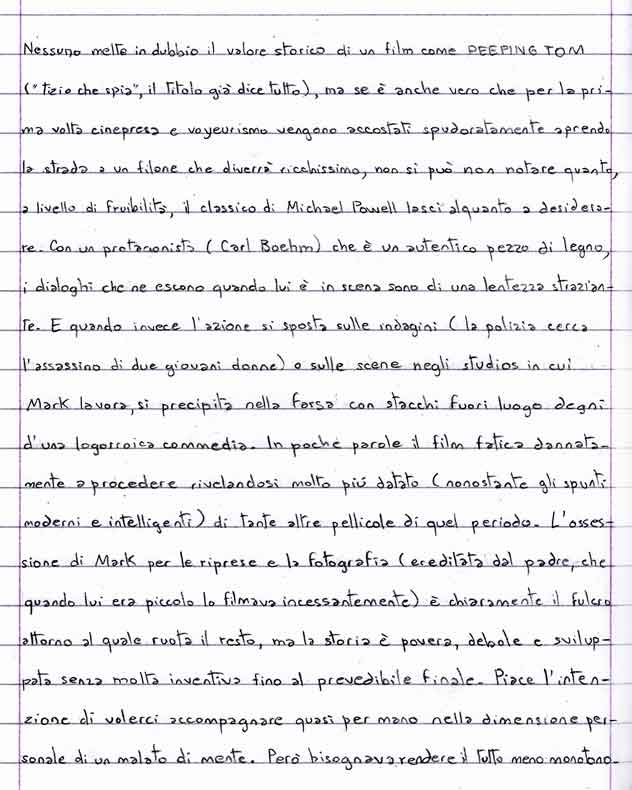 Nessuno mette in dubbio il valore storico di un film come PEEPING TOM
("tizio che spia", il titolo già dice tutto), ma se è anche vero che per la pri-
ma volta cinepresa e voyeurismo vengono accostati spudoratamente aprendo
la strada a un filone che diverrà ricchissimo, non si può non notare quanto,
a livello di fruibilità, il classico di Michael Powell lasci alquanto a desidera-
re. Con un protagonista (Carl Boehm) che è un autentico pezzo di legno,
i dialoghi che ne escono quando lui è in scena sono di una lentezza strazian-
te. E quando invece l'azione si sposta sulle indagini (la polizia cerca
l'assassino di due giovani donne) o sulle scene negli studios in cui
Mark lavora, si precipita nella farsa con stacchi fuori luogo degni
d'una logorroica commedia. In poche parole il film fatica dannata-
mente a procedere rivelandosi molto più datato (nonostante gli spunti
moderni e intelligenti) di tante altre pellicole di quel periodo. L'osses-
sione di Mark per le riprese e la fotografia (ereditata dal padre, che
quando lui era piccolo lo filmava incessantemente) è chiaramente il fulcro
attorno al quale ruota il resto, ma la storia è povera, debole e svilup-
pata senza molta inventiva fino al prevedibile finale. Piace l'inten-
zione di volerci accompagnare quasi per mano nella dimensione per-
sonale di un malato di mente. Però bisognava rendere il tutto meno monotono.